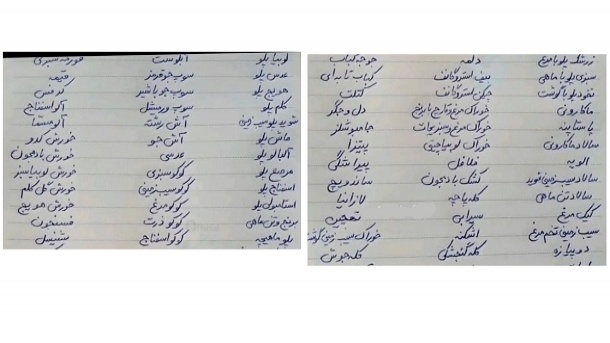 لوبیا پلو آبگوشت قورمه سبزی
عدس پلو سوپ جو قرمز قیمه
هویج پلو سوپ جو با شیر کرفس
کلم پلو سوپ ورمیشل آلو اسفناج
شوید پلو سیب زمینی آش رشته
ماش پلو آش جو خورش کدو
آلبالو پلو عدسی خورش بادمجون
مرصع پلو کوکو سبزی خورش لوبیا سبز
اسفناج پلو کوکو سیب زمینی خورش گل کلم
استامبولی پلو کوکو مرغ خورش هویج
برنج و تن ماهی کوکو ذرت فسنجون
پلو ماهیچه کوکو اسفناج شنیسل
زرشک پلو با مرغ دلمه جوجه کباب
سبزی پلو با ماهی بیف استروگانف کباب تابه ای
نخود پلو با گوشت چیکن استروگانف کتلت
ماکارونی خوراک مرغ و قارچ دل و جگر
پاستا پنه خوراک مرغ و سبزیجات
سالاد ماکارونی خوراک لوبیا چیتی پیتزا
الویه فلافل پیراشکی
سالاد سیب زمینی کشک بادنجون ساندویچ
سالاد تن ماهی کله پاچه لازانیا
کیک مرغ سیرابی ته‌چین
سیب زمینی تخم مرغ اشکنه خوراک سیب زمینی گوشت
دوپیازه کله گنجشکی کله جوش